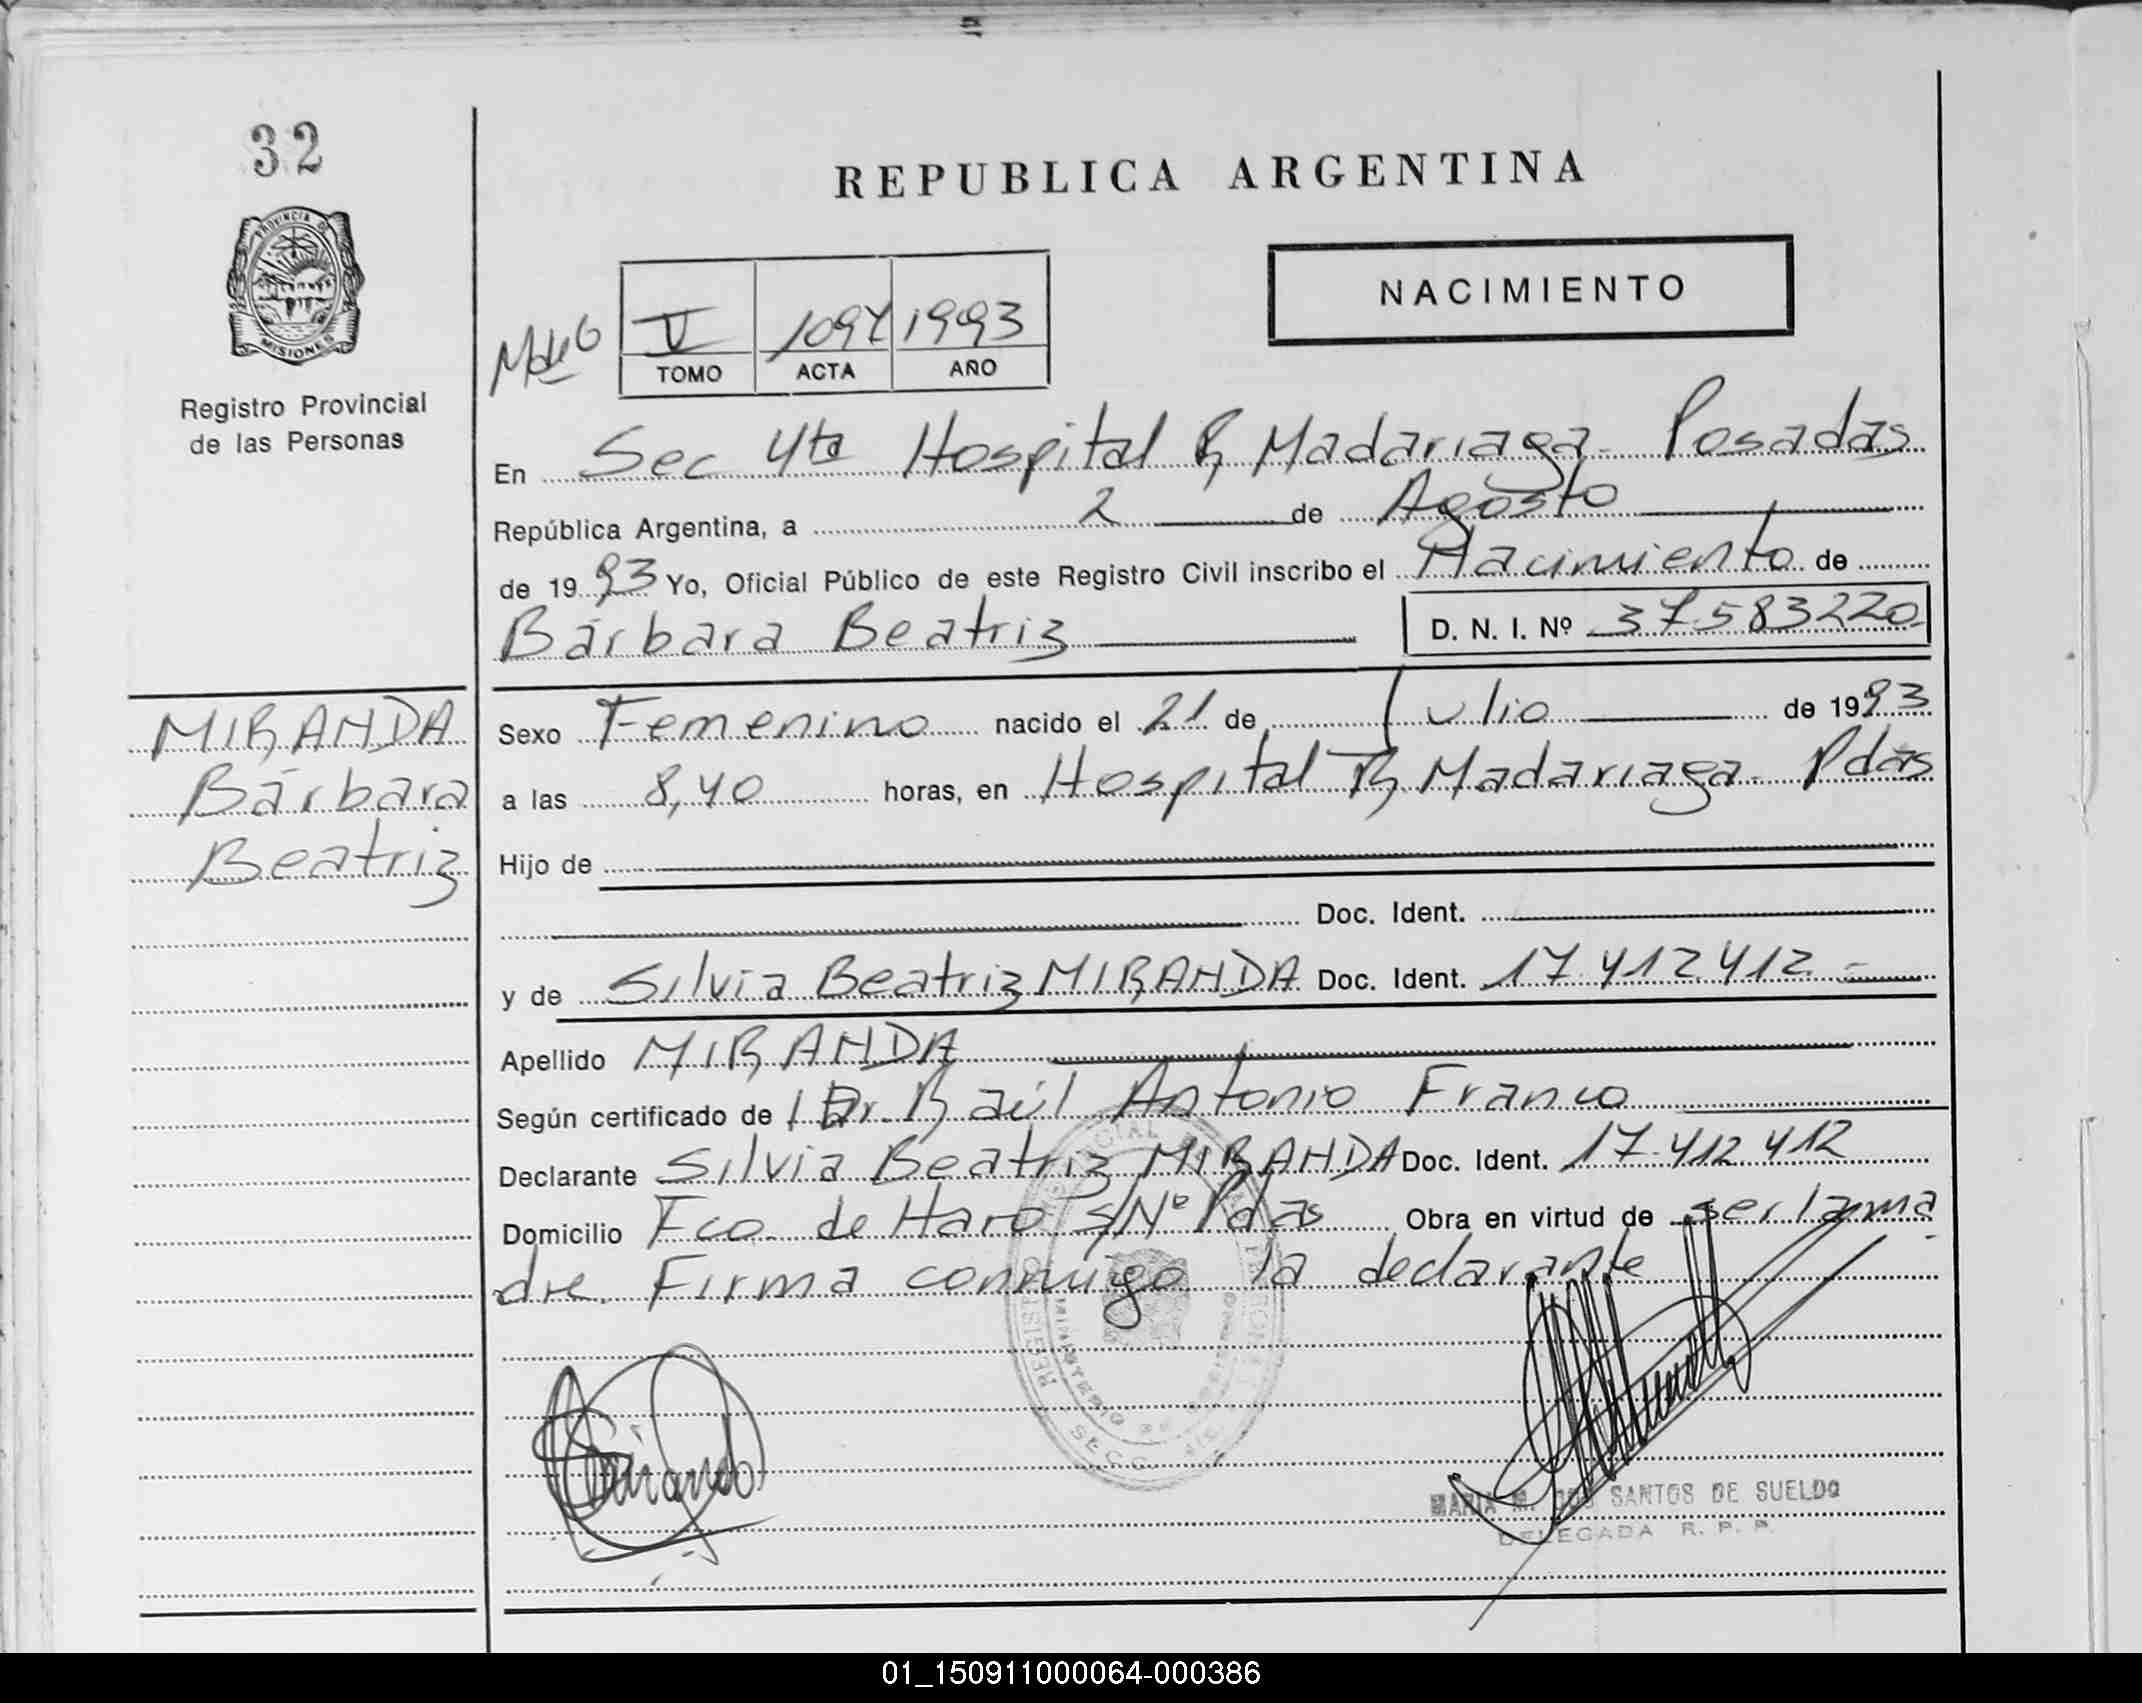 32
REPUBLICA ARGENTINA
PROVINCIA DE
MISIONES
Registro Provincial
de las Personas
NACIMIENTO
V 1097 1993
TOMO ACTA AÑO
En Sec 4ta Hospital R. Madariaga - Posadas
República Argentina, a 2 de Agosto
de 1993 Yo, Oficial Público de este Registro Civil inscribo el Nacimiento de
Bárbara Beatriz D. N. I. Nº 37583220
MIRANDA
Bárbara
Beatriz
Sexo Femenino nacido el 21 de Julio de 1993
a las 8,40 horas, en Hospital R. Madariaga - Pdas
Hijo de
Doc. Ident.
y de Silvia Beatriz MIRANDA Doc. Ident. 17.412.412.-
Apellido MIRANDA
Según certificado de Dr. Raúl Antonio Franco
Declarante Silvia Beatriz MIRANDA Doc. Ident. 17.412.412
Domicilio Fco. de Haro S/Nº Pdas Obra en virtud de ser la ma
dre. Firma conmigo la declarante
MARIA M. DOS SANTOS DE SUELDO
DELEGADA R. P. P.
01_150911000064-000386